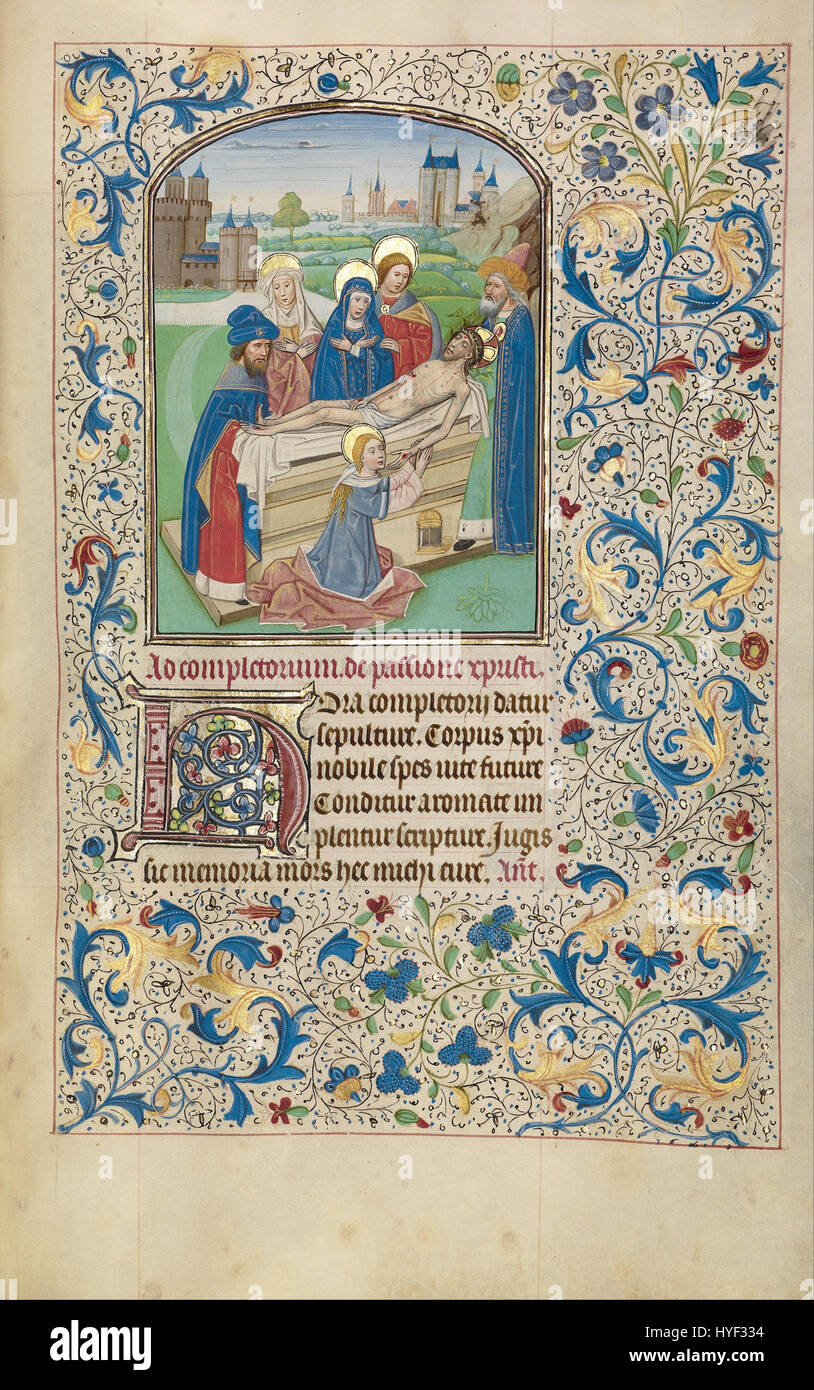 Ad completorium. de passione xpristi.
Hora completorij datur
sepulture. Corpus xpi
nobile spes uite future
Conditur aromate im
plentur scripture. Jugis
sic memoria mors hec michi cure. Ant.
alamy stock photo
HYF334
www.alamy.com